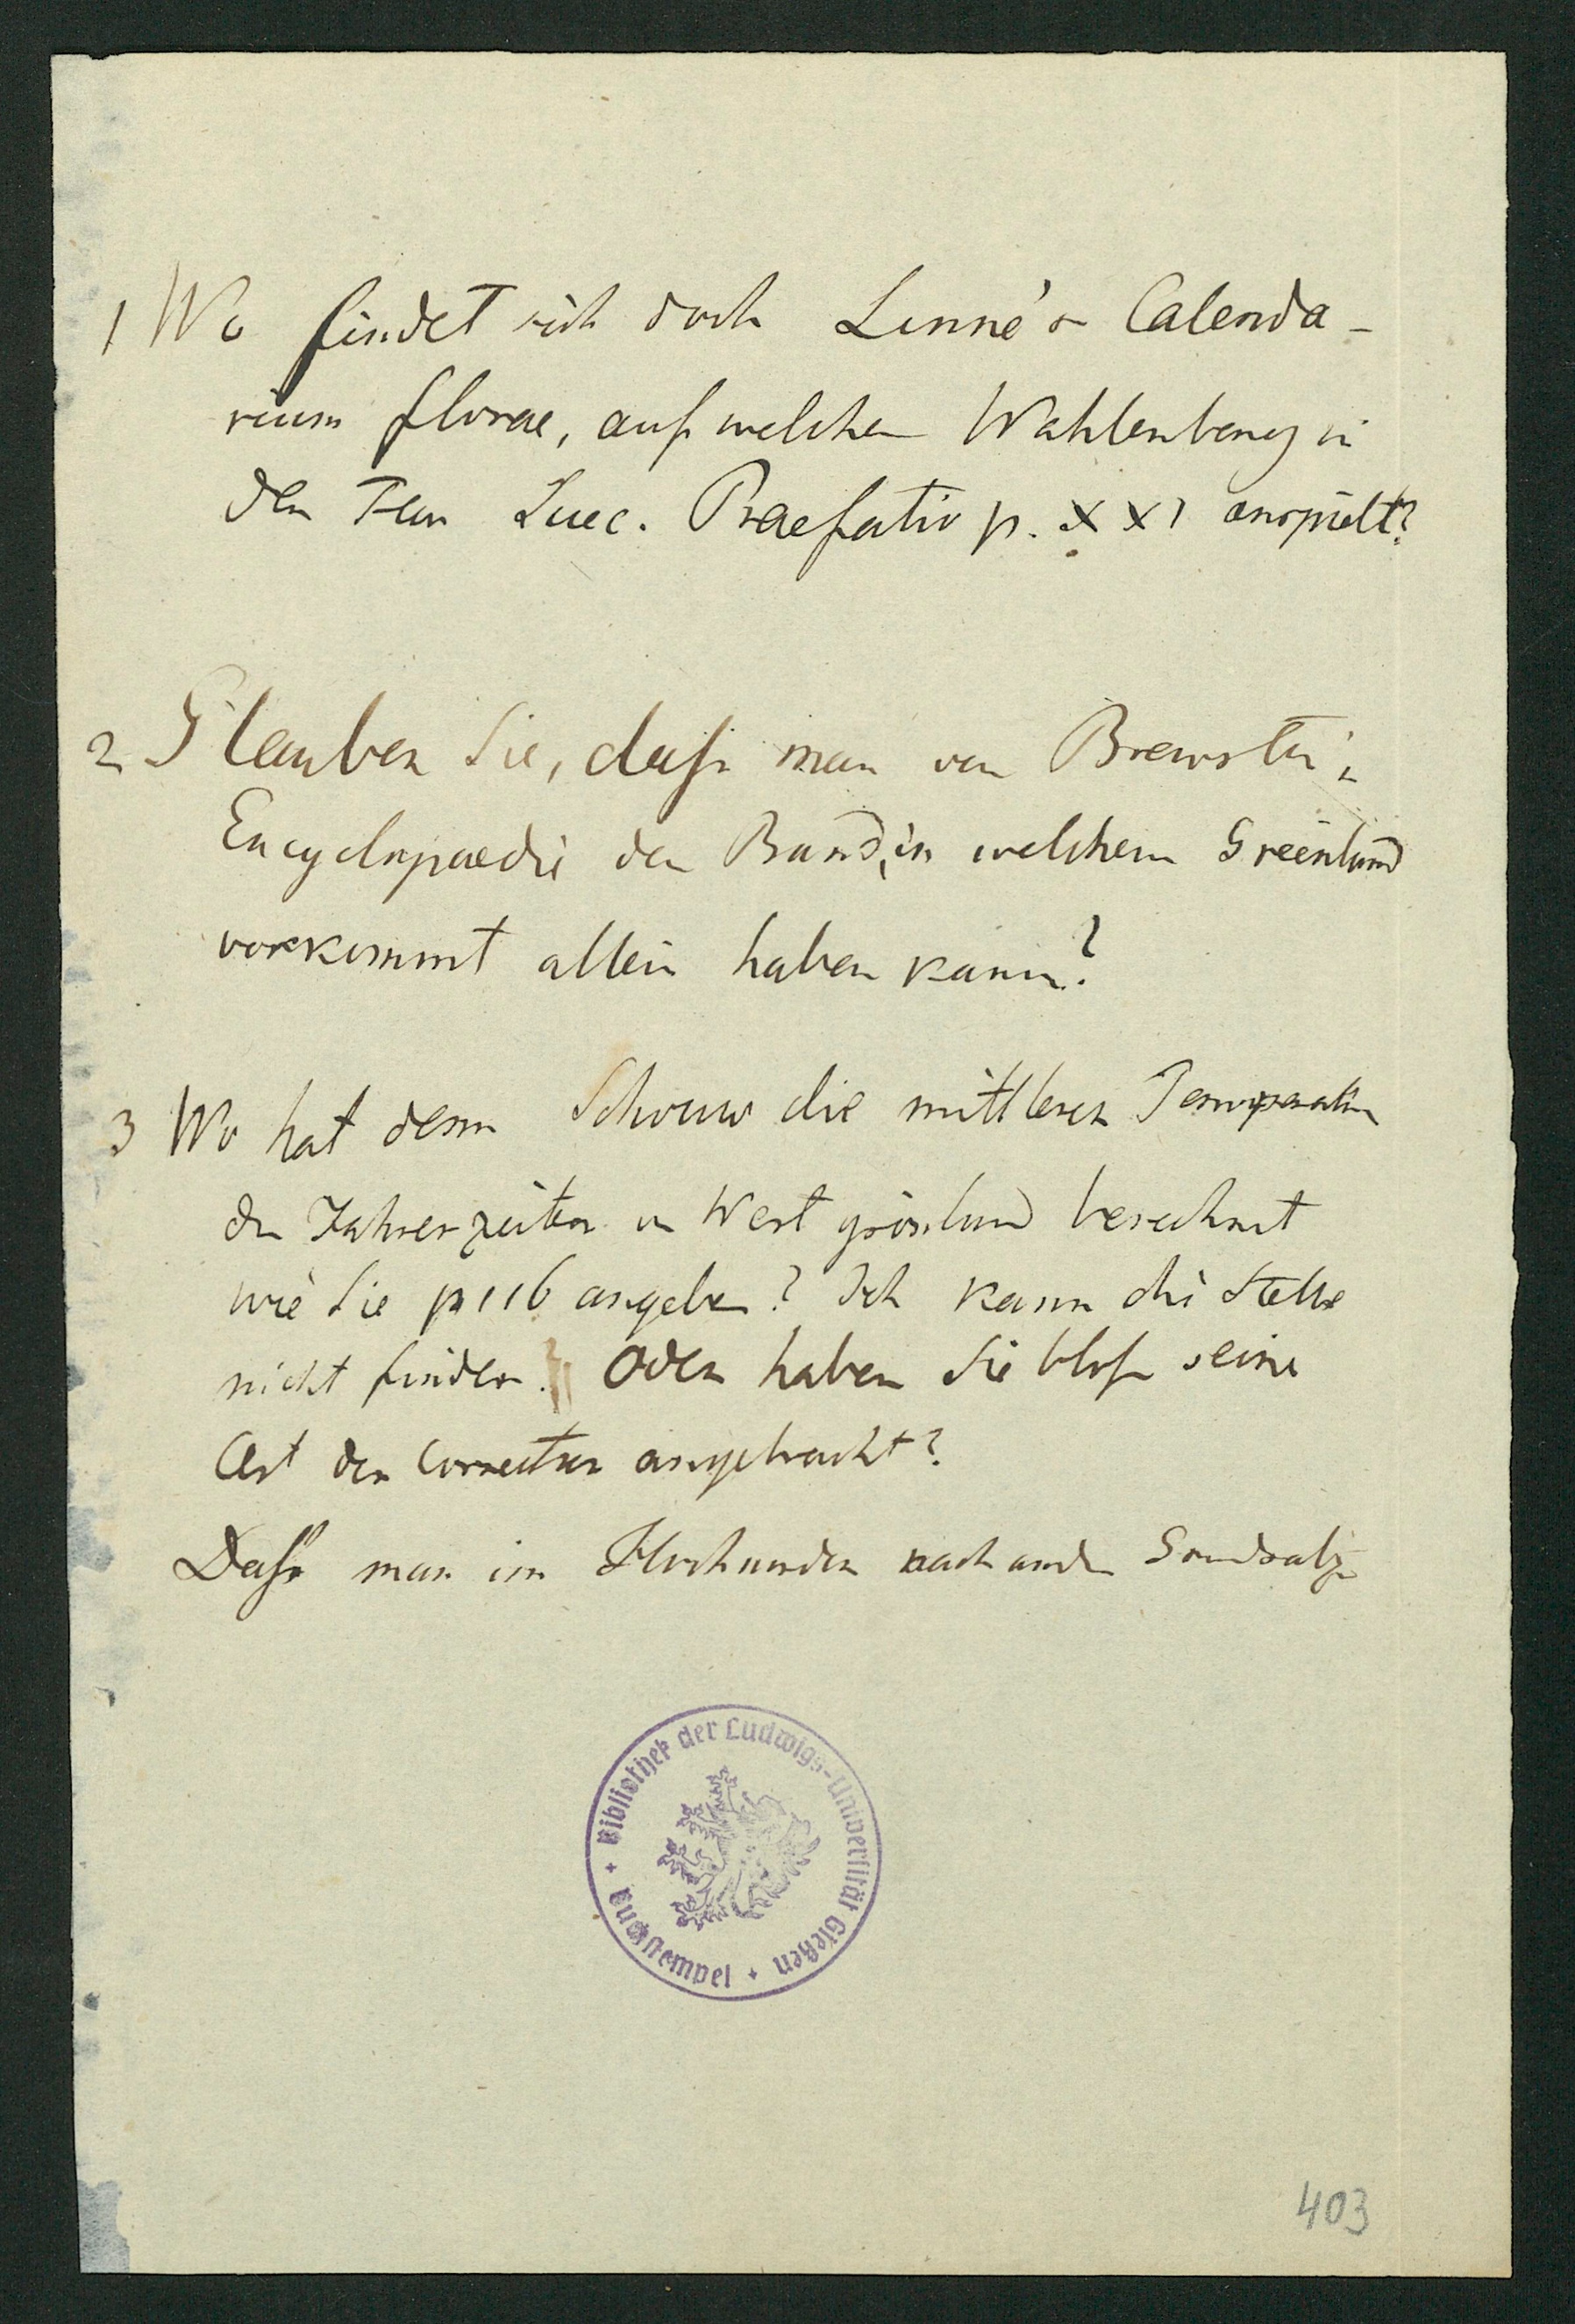 1 Wo findet sich doch Linné's Calenda-
rium florae, auf welchen Wahlenberg in
der Flor Suec. Praefatio p. XXI anspielt?
2 Glauben Sie, dass man von Brewster's
Encyclopaedie den Band, in welchem Greenland
vorkommt allein haben kann?
3 Wo hat denn Schouw die mittleren Temperaturen
der Jahreszeiten in Westgrönland berechnet
wie Sie p 116 angeben? Ich kann die Stelle
nicht finden. Oder haben Sie bloss seine
Art der Correction angebracht?
Dass man im Hochnorden nach andern Grundsätzen
Bibliothek der Ludwigs-Universität Gießen
Buchstempel
403